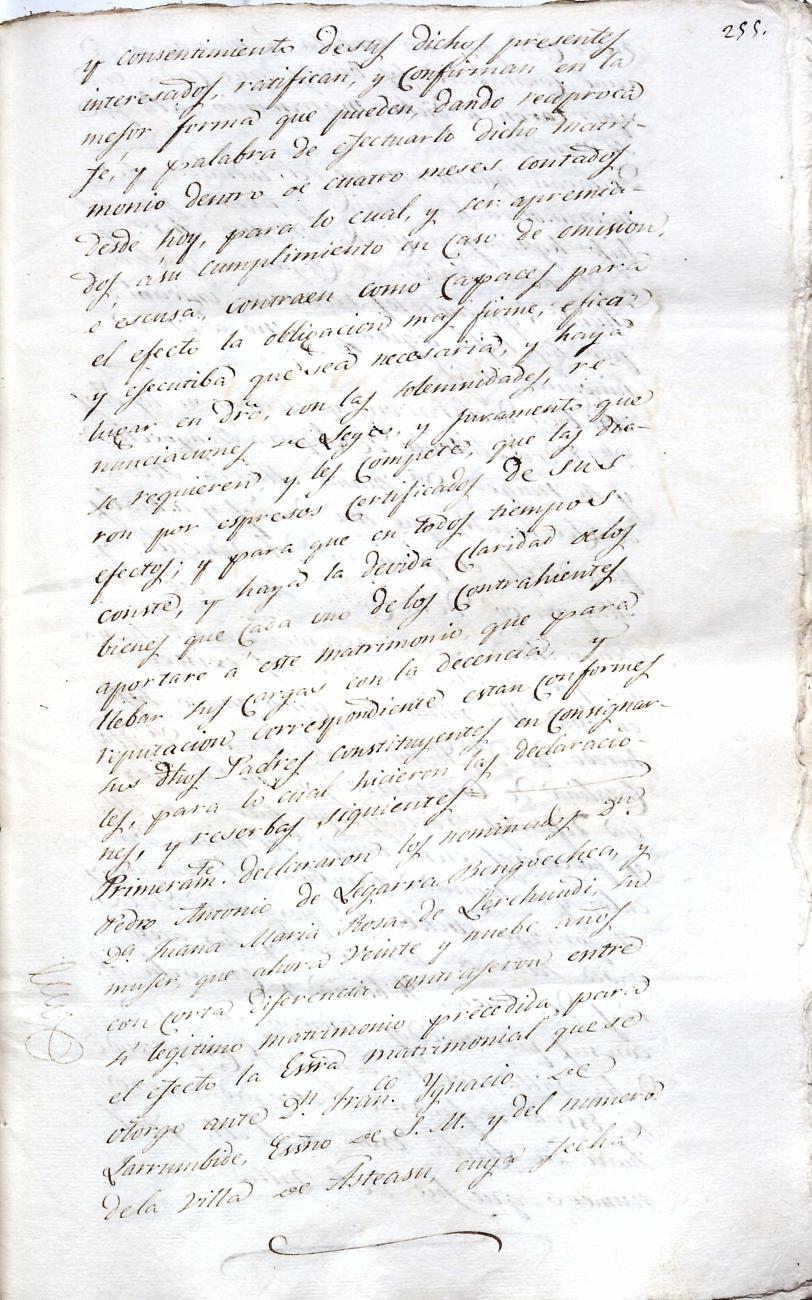 255.
y consentimiento destos dichos presentes
interesados, ratifican, y Confirman en la
mejor forma que pueden, dando reciproca
fé, y palabra de efectuarlo dicho matri-
monio dentro de cuatro meses contados
desde hoy, para lo cual, y sér apremia-
dos á su cumplimiento en Caso de omision,
ó escusa, contraen como Capaces para
el efecto la obligacion mas firme, eficaz
y ejecutiba que sea necesaria, y haya
lugar en dro, con las solemnidades, re-
nunciaciones de Leyes, y juramento que
se requieren y les Compete, que las die-
ron por espresos Certificados de sus
efectos; y para que en todos tiempos
conste, y haya la devida Claridad de los
bienes que Cada uno delos Contrahientes
aportare á este matrimonio, que para
llebar sus Cargas con la decencia y
reputacion correspondiente estan Conformes
sus dhos Padres constituyentes en Consignar-
les, para lo cual hicieron las declaracio-
nes, y reserbas siguientes
Primeramte. declararon los nominados Dn.
Pedro Antonio de Legarra Bengoechea, y
Da. Juana Maria Rosa de Larchundi, su
muger, que ahora veinte y nuebe años
con corta diferencia contrageron entre
sí legitimo matrimonio precedida para
el efecto la Essra matrimonial que se
otorgo ante Dn. Franco. Ygnacio de
Larrumbide, Essno de S. M. y del numero
dela Villa de Asteasu, cuya fecha